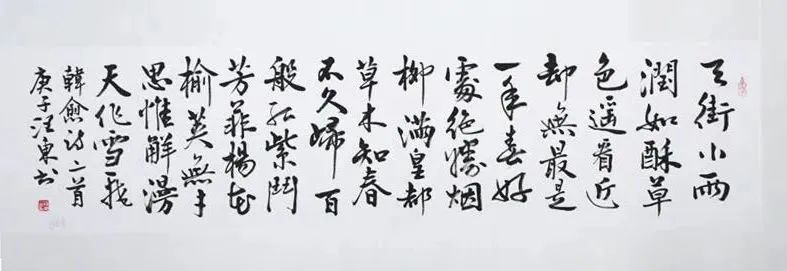 天街小雨
潤如酥草
色遥看近
却無最是
一年春好
處绝勝烟
柳滿皇都
草木知春
不久歸百
般紅紫鬥
芳菲楊花
榆莢無才
思惟解漫
天作雪飛
韓愈詩二首
庚子汪東书